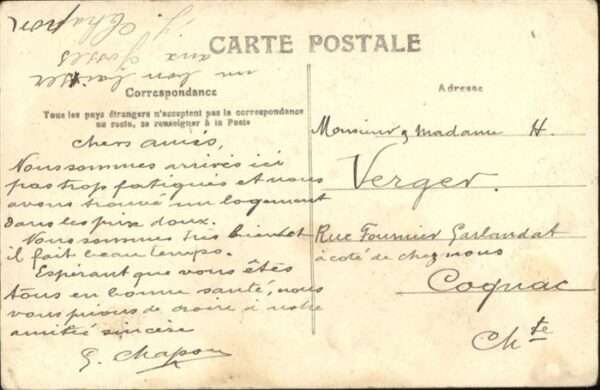 CARTE POSTALE
Correspondance
Tous les pays étrangers n'acceptent pas la correspondance
au recto, se renseigner à la Poste
chers amies,
Nous sommes arrivés ici
pas trop fatigués et nous
avons trouvé un logement
dans les prix doux.
Nous sommes très bien et
il fait beau temps.
Espérant que vous êtes
tous en bonne santé, nous
vous prions de croire à notre
amitié sincère
G. Chapon
un bon baiser
aux gosses
G. Chapon
Adresse
Monsieur & madame H.
Verger.
Rue Fournier Garlandat
à coté de chez nous
Cognac
Chte